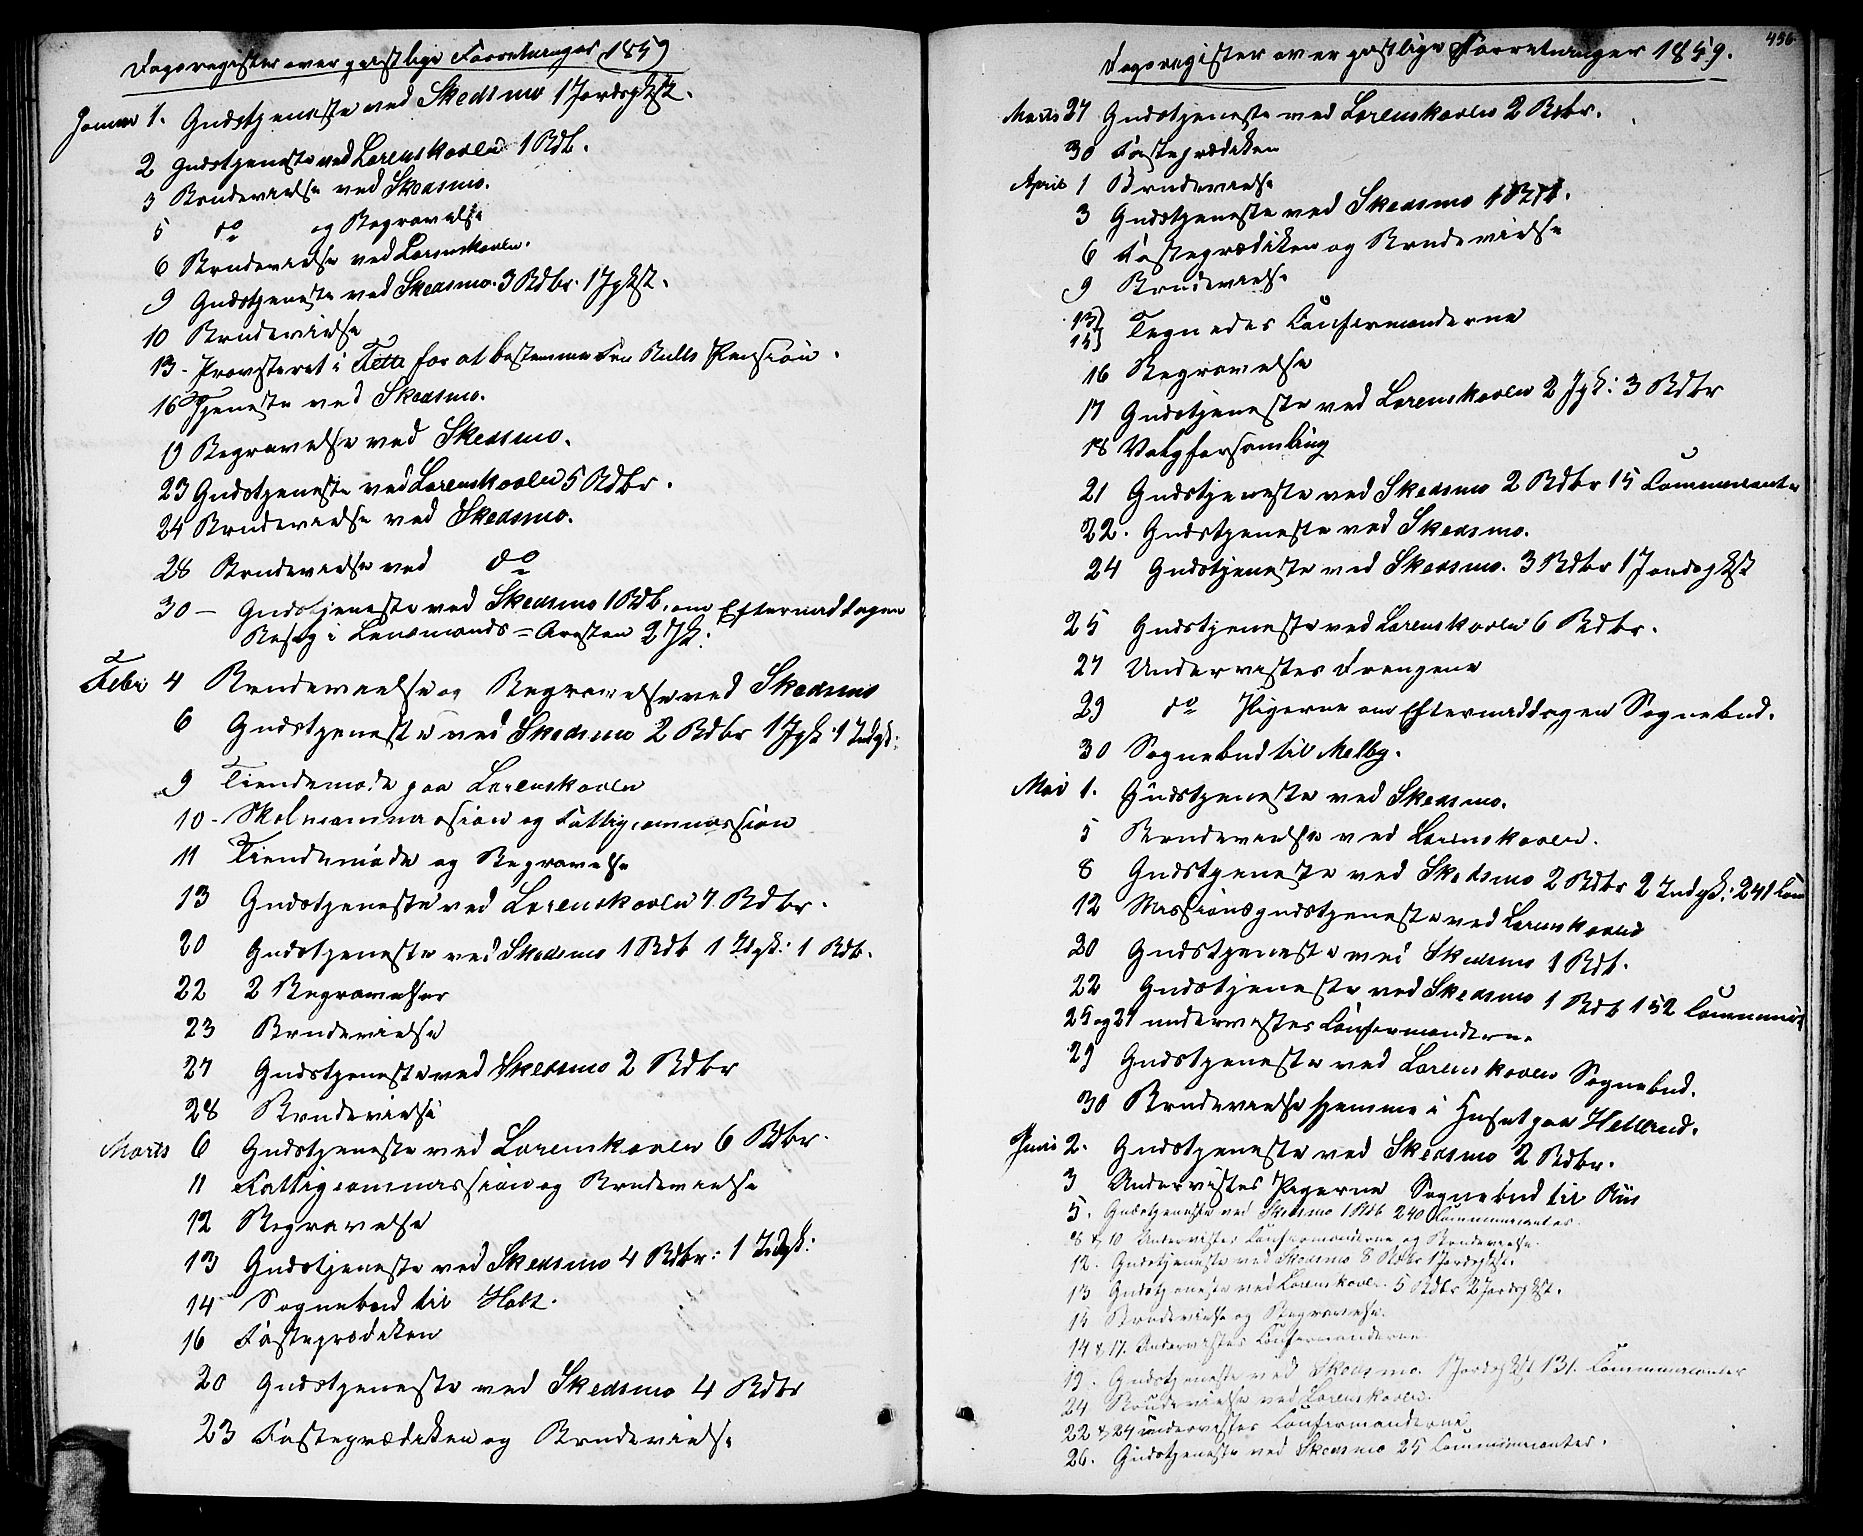 Dagsregister over geistlige Forretninger 1859
Januar 1. Gudstjeneste ved Skedsmo 1 Jordspkst.
2 Gudstjeneste ved Lørenskoven 1 Rdb.
3 Brudevielse ved Skedsmo.
5 do og Begravelse
6 Brudevielse ved Lørenskoven.
9 Gudstjeneste ved Skedsmo. 3 Rdbr. 1 Jpkst.
10 Brudevielse
13 - Provsteret i Fetti for at bestemme Fru Bulls Pension.
16 Tjeneste ved Skedsmo.
19 Begravelse ved Skedsmo.
23 Gudstjeneste ved Lørenskoven 5 Rdbr.
24 Brudevielse ved Skedsmo.
28 Brudevielse ved do
30 - Gudstjeneste ved Skedsmo 1 Rdb. om Eftermiddagen
Besøg i Lensmands-Aresten 2 Jk.
Febr 4 Brudevielse og Begravelse ved Skedsmo
6 Gudstjeneste ved Skedsmo 2 Rdbr 1 Jpk. 1 Indgk:
9 Tiendemøde paa Lørenskoven
10 - Skolecommission og Fattigcommission
11 Tiendemøde og Begravelse
13 Gudstjeneste ved Lørenskoven 7 Rdbr.
20 Gudstjeneste ved Skedsmo 1 Rdb 1 Idgk: 1 Rdb.
22 2 Begravelser
23 Brudevielse
27 Gudstjeneste ved Skedsmo 2 Rdbr
28 Brudevielse
Marts 6 Gudstjeneste ved Lørenskoven 6 Rdbr.
11 Fattigcommission og Brudevielse
12 Begravelse
13 Gudstjeneste ved Skedsmo 4 Rdbr: 1 Indgk:
14 Sognebud til Holt.
16 Fasteprædiken
20 Gudstjeneste ved Skedsmo 4 Rdbr
23 Fasteprædiken og Brudevielse
436
Dagsregister over geistlige Forretninger 1859.
Marts 27 Gudstjeneste ved Lørenskoven 2 Rdbr.
30 Fasteprædiken
April 1 Brudevielse
3 Gudstjeneste ved Skedsmo 1 Rdb.
6 Fasteprædiken og Brudevielse
9 Brudevielse
13
15 Tegnedes Confirmanderne
16 Begravelse
17 Gudstjeneste ved Lørenskoven 2 Jgk: 3 Rdbr
18 Valgforsamling
21 Gudstjeneste ved Skedsmo 2 Rdbr 15 Communicanter
22. Gudstjeneste ved Skedsmo.
24 Gudstjeneste ved Skedsmo. 3 Rdbr 1 Jordspkst
25 Gudstjeneste ved Lørenskoven 6 Rdbr.
27 Undervistes Drengene
29 do Pigerne om Eftermiddagen Sognebud.
30 Sognebud til Melby.
Mai 1. Gudstjeneste ved Skedsmo.
5 Brudevielse ved Lørenskoven.
8 Gudstjeneste ved Skedsmo 2 Rdbr 2 Indgk: 241 Com
12 Missionsgudstjeneste ved Lørenskoven
20 Gudstjeneste ved Skedsmo 1 Rdb.
22 Gudstjeneste ved Skedsmo 1 Rdb 152 Communic
25 og 27 undervistes Confirmanderne
29 Gudstjeneste ved Lørenskoven Sognebud.
30 Brudevielse hjemme i Huset paa Hellerud.
Juni 2. Gudstjeneste ved Skedsmo 2 Rdbr.
3 Undervistes Pigerne Sognebud til Riis
5. Gudstjeneste ved Skedsmo 1 Rdb 240 Communicanter.
8 & 10 Undervistes Confirmanderne og Brudevielse.
12. Gudstjeneste ved Skedsmo 8 Rdbr 1 Jordspkst.
13 Gudstjeneste ved Lørenskoven. 5 Rdbr 2 Jordspkst.
15 Brudevielse og Begravelse.
14 & 17. Undervistes Confirmanderne
19. Gudstjeneste ved Skedsmo. 1 Jordspkst 131. Communicanter
24 Brudevielse ved Lørenskoven.
22 & 24 undervistes Confirmanderne
26. Gudstjeneste ved Skedsmo 25 Communicanter.